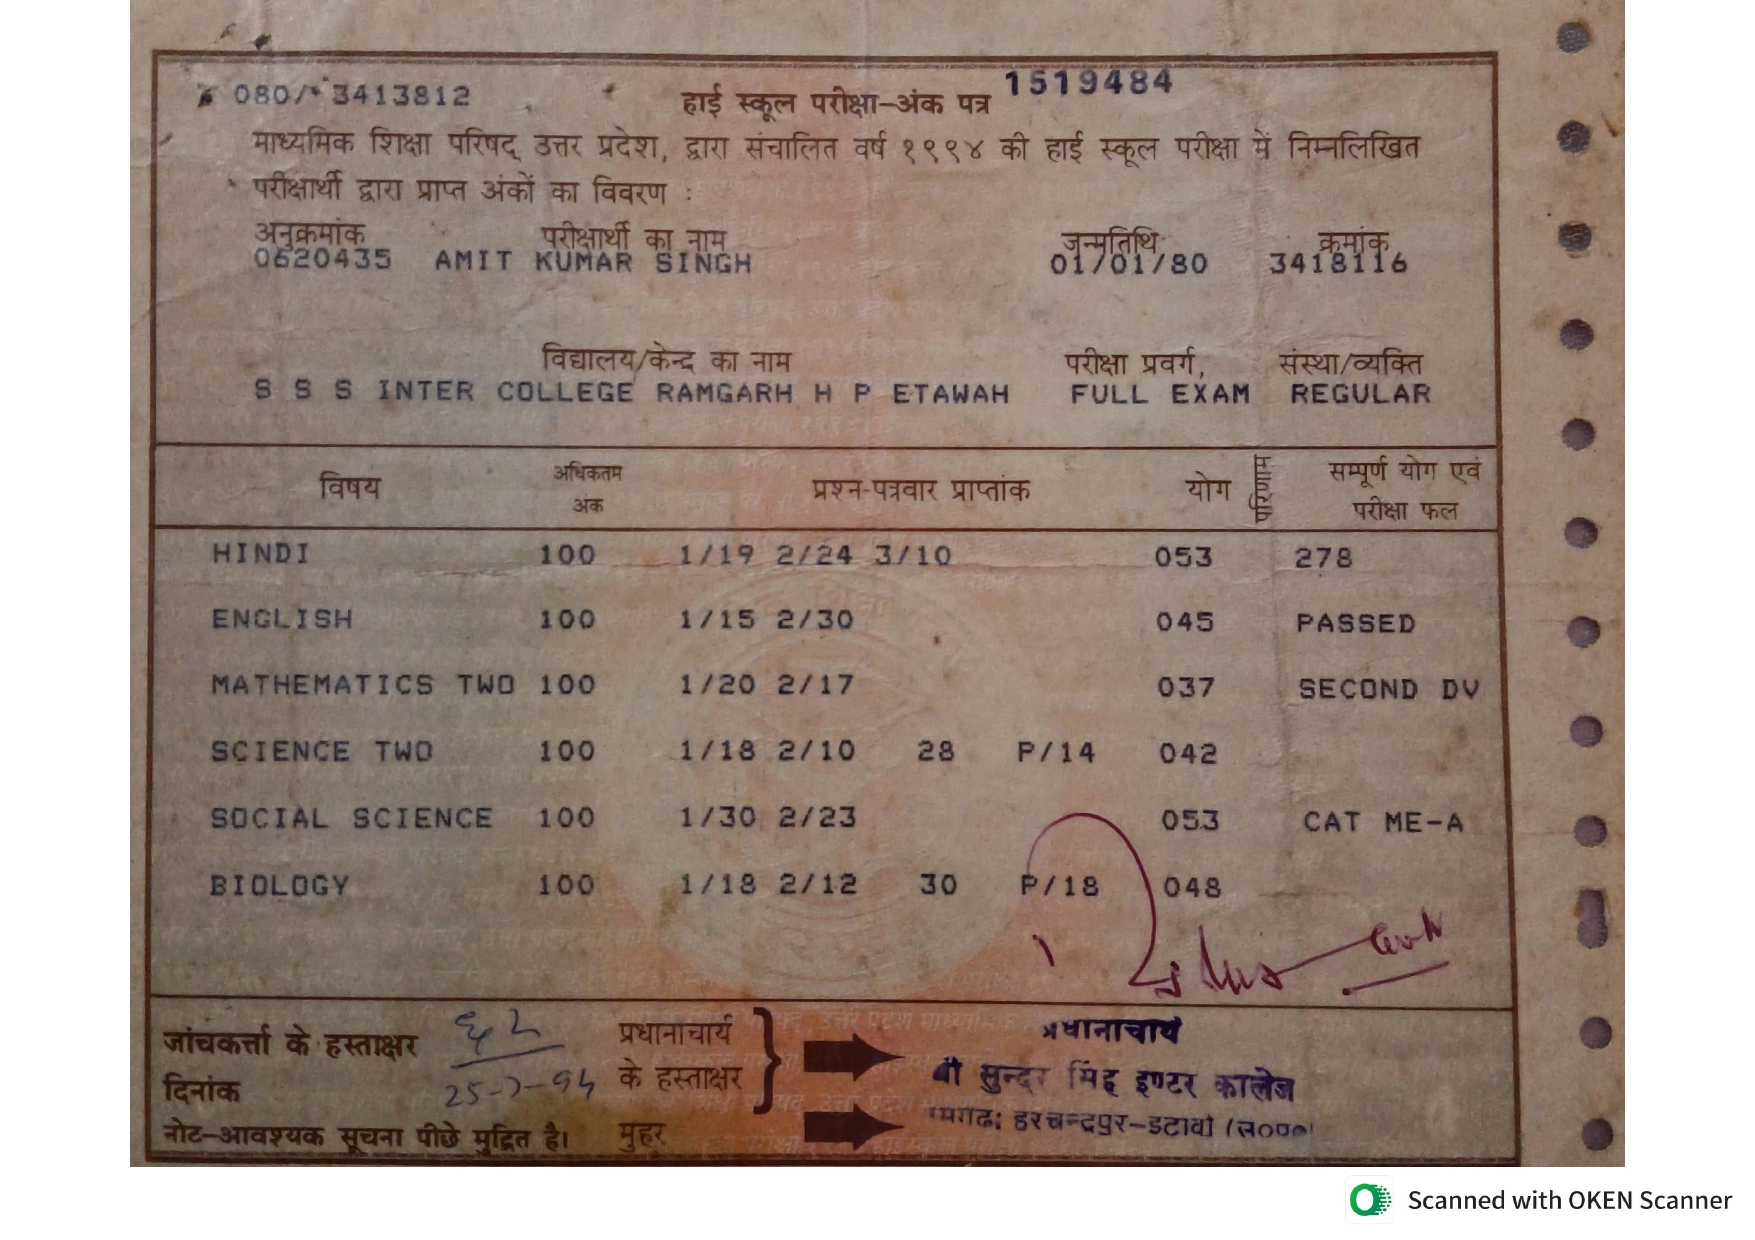 080/ 3413812 हाई स्कूल परीक्षा–अंक पत्र 1519484
माध्यमिक शिक्षा परिषद् उत्तर प्रदेश, द्वारा संचालित वर्ष १९९४ की हाई स्कूल परीक्षा में निम्नलिखित
परीक्षार्थी द्वारा प्राप्त अंकों का विवरण :
अनुक्रमांक परीक्षार्थी का नाम जन्मतिथि क्रमांक
0620435 AMIT KUMAR SINGH 01/01/80 3418116
विद्यालय/केन्द्र का नाम परीक्षा प्रवर्ग, संस्था/व्यक्ति
S S S INTER COLLEGE RAMGARH H P ETAWAH FULL EXAM REGULAR
विषय अधिकतम अंक प्रश्न-पत्रवार प्राप्तांक योग परिणाम सम्पूर्ण योग एवं परीक्षा फल
HINDI 100 1/19 2/24 3/10 053 278
ENGLISH 100 1/15 2/30 045 PASSED
MATHEMATICS TWO 100 1/20 2/17 037 SECOND DV
SCIENCE TWO 100 1/18 2/10 28 P/14 042
SOCIAL SCIENCE 100 1/30 2/23 053 CAT ME-A
BIOLOGY 100 1/18 2/12 30 P/18 048
जांचकर्त्ता के हस्ताक्षर प्रधानाचार्य प्रधानाचार्य
दिनांक 25-7-94 के हस्ताक्षर श्री सुन्दर सिंह इण्टर कालेज
नोट–आवश्यक सूचना पीछे मुद्रित है। मुहर हरचन्दपुर–इटावा
Scanned with OKEN Scanner